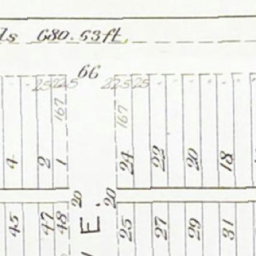 ds 680.53 ft.
66
25 22.5 22.5 25
167 167
4 2 1 24 22 20 18
20 20
45 47 48 25 27 29 31
E.